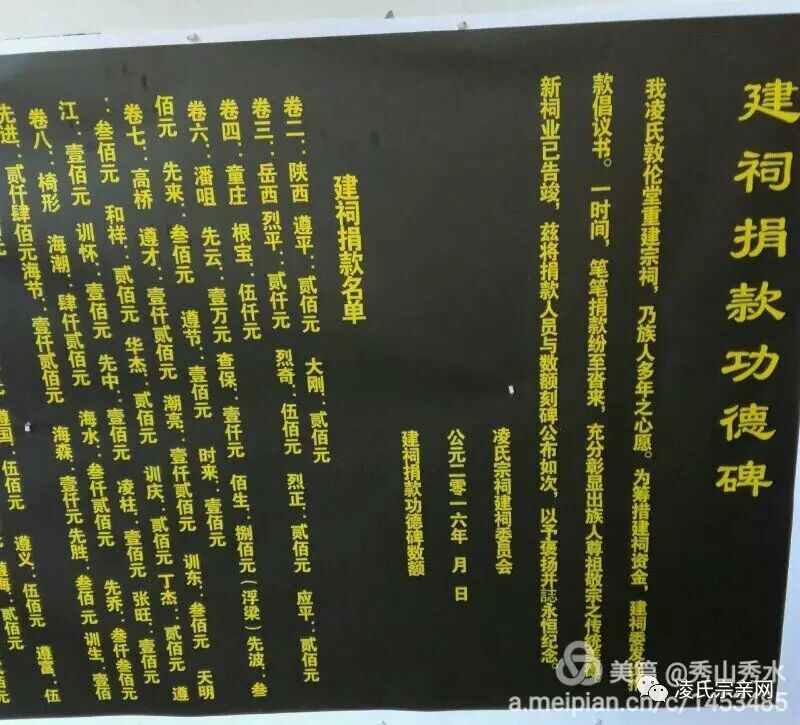 建祠捐款功德碑
我凌氏敦伦堂重建宗祠，乃族人多年之心愿。为筹措建祠资金，建祠委发
款倡议书。一时间，笔笔捐款纷至沓来，充分彰显出族人尊祖敬宗之传统
新祠业已告竣，兹将捐款人员与数额刻碑公布如次，以予褒扬并誌永恒纪念。
凌氏宗祠建祠委员会
公元二零一六年 月 日
建祠捐款功德碑数额
建祠捐款名单
卷二：陕西 遵平：贰佰元 大刚：贰佰元
卷三：岳西 烈平：贰仟元 烈奇：伍佰元 烈正：贰佰元 应平：贰佰元
卷四：童庄 根宝：伍仟元
卷六：潘咀 先云：壹万元 查保：壹仟元 佰生：捌佰元（浮梁）先波：叁
佰元 先来：叁佰元 遵节：壹佰元 时来：壹佰元
卷七：高桥 遵才：壹仟贰佰元 潮亮：壹仟贰佰元 训东：叁佰元 天明
：叁佰元 和样：贰佰元 华杰：贰佰元 训庆：贰佰元 丁杰：贰佰元 遵
江：壹佰元 训怀：壹佰元 先中：壹佰元 凌柱：壹佰元 张旺：壹佰元
卷八：椅形 海潮：肆仟贰佰元 海水：叁仟贰佰元 先乔：叁仟叁佰元
先进：贰仟肆佰元 海节：壹仟贰佰元 海森：壹仟元 先胜：叁佰元 训生：壹佰
遵国：伍佰元 遵义：伍佰元 遵富：伍
贰佰元
美篇 @秀山秀水
a.meipian.cn/c/1453485
凌氏宗亲网